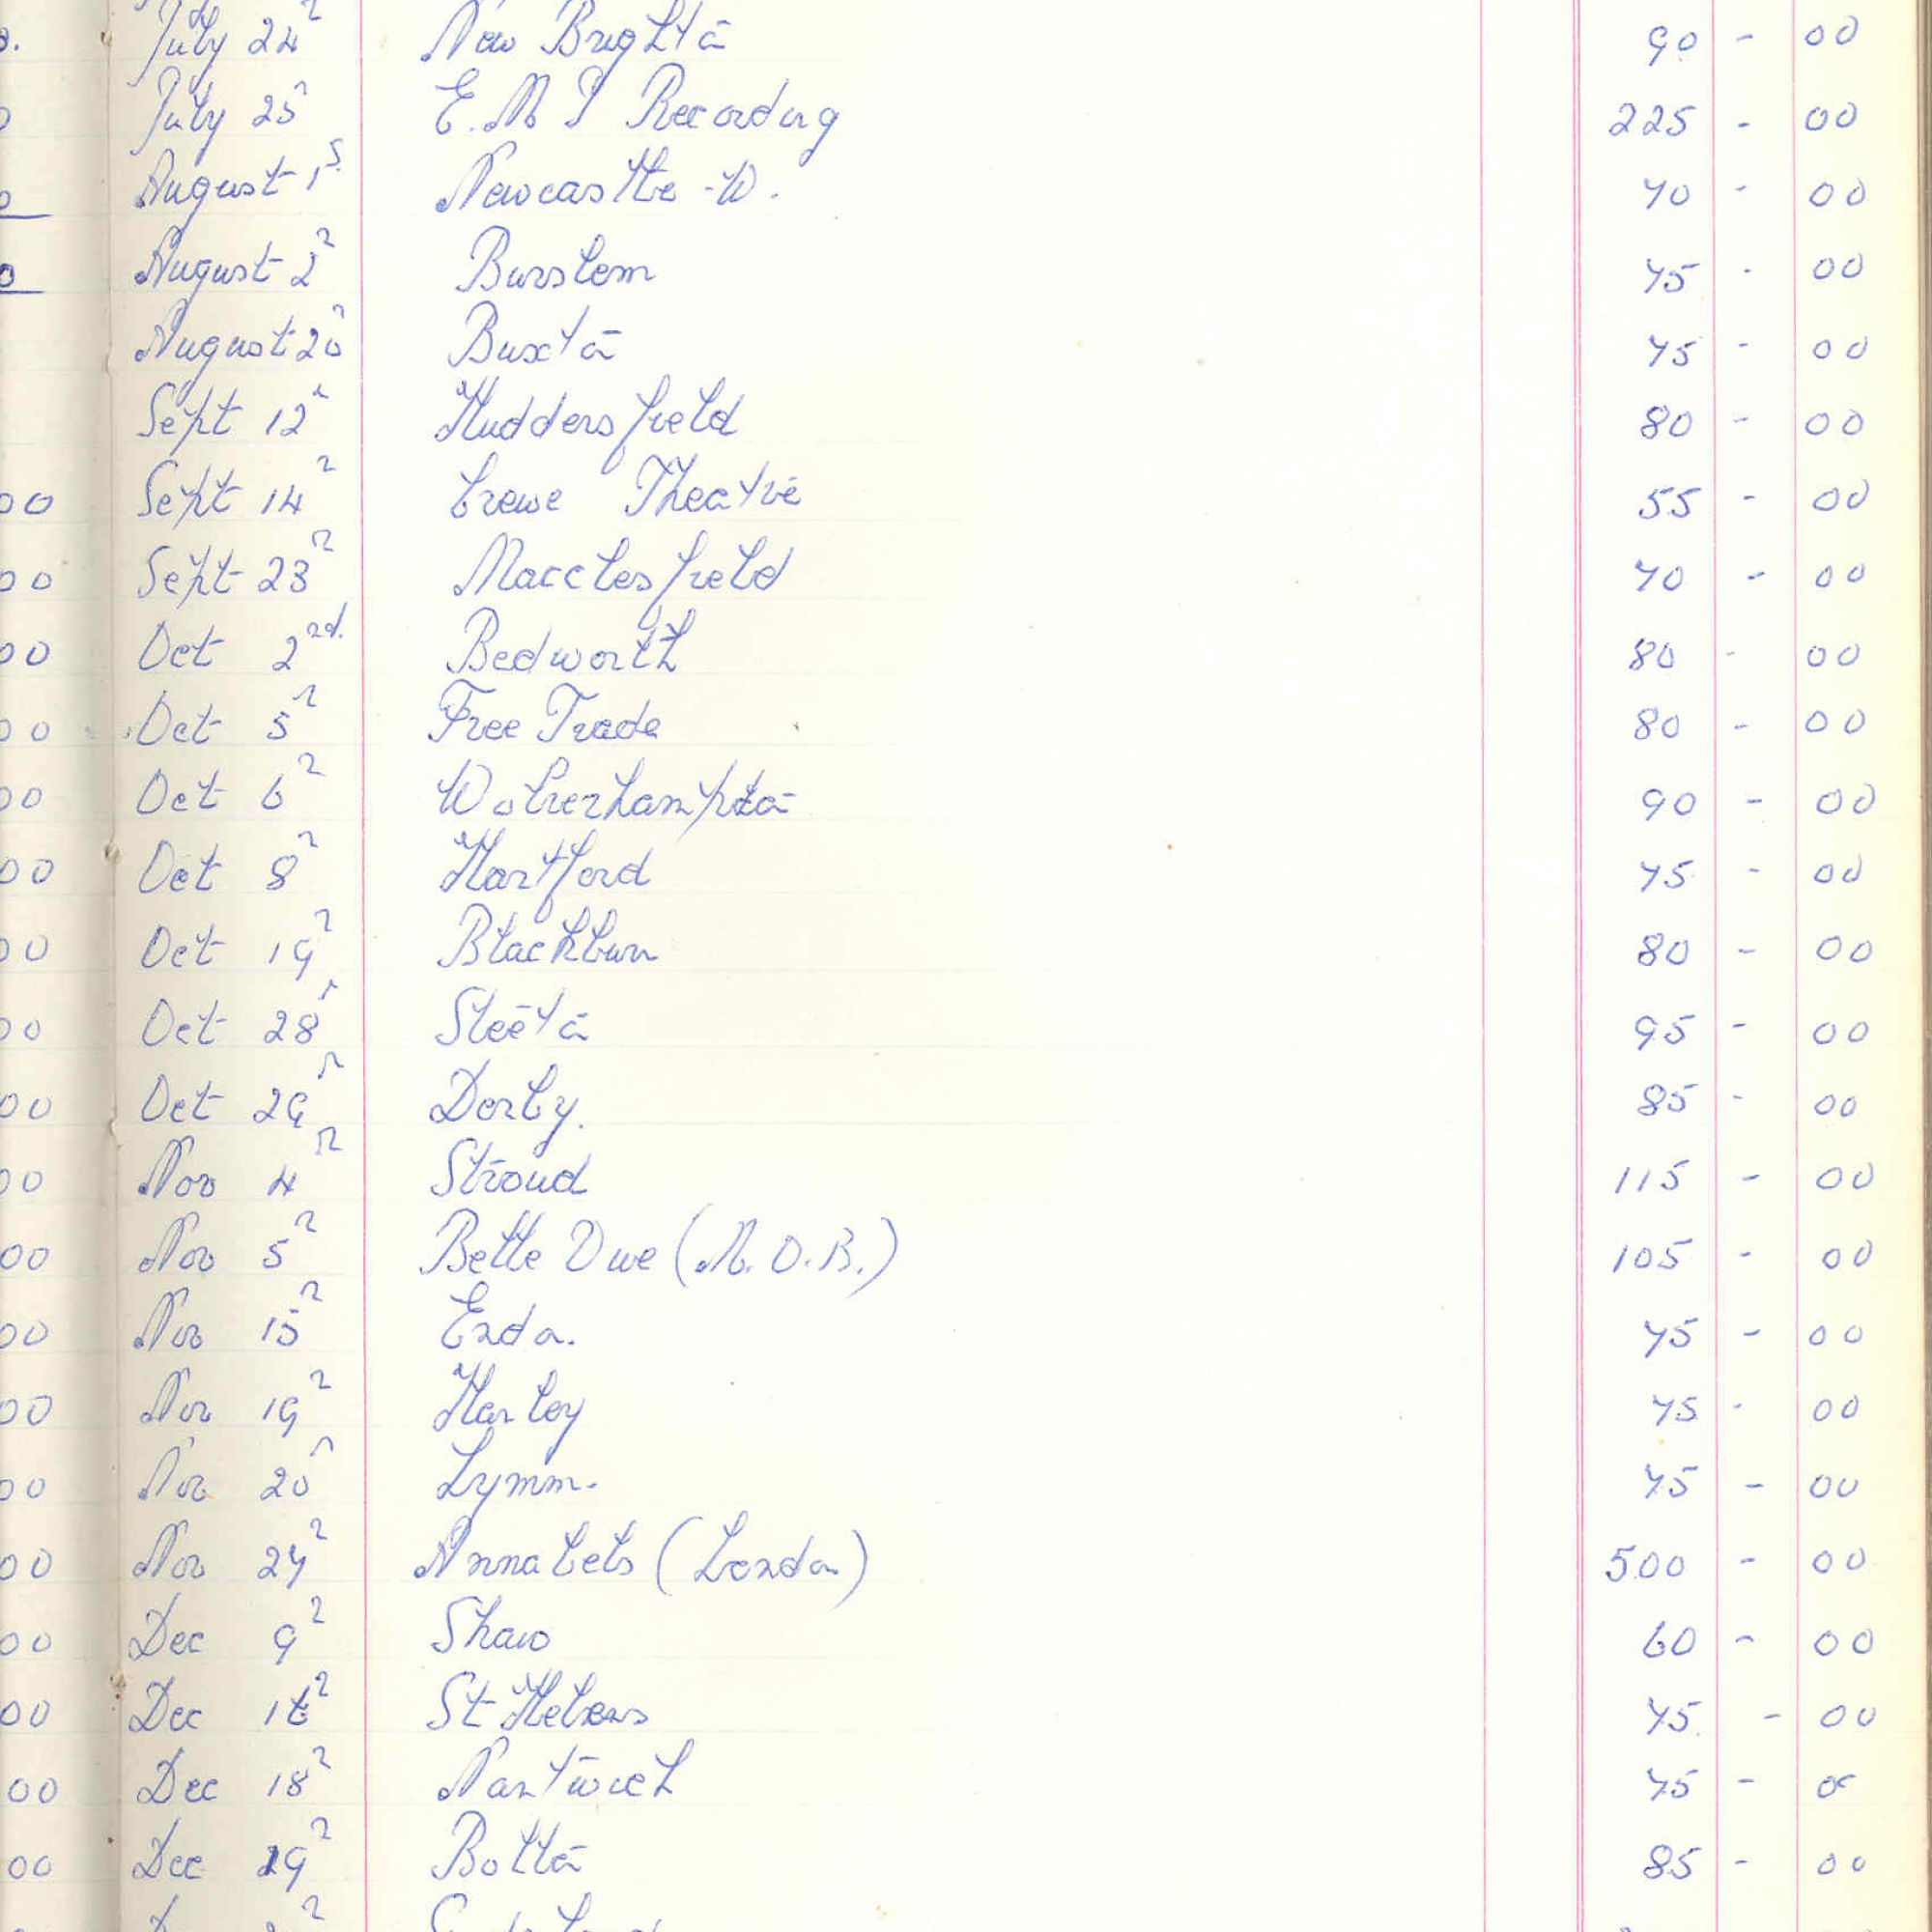 July 24 New Brighton 90 - 00
July 25 E.M I Recording 225 - 00
August 1s Newcastle - W. 70 - 00
August 2 Burslem 75 - 00
August 20 Buxton 75 - 00
Sept 12 Huddersfield 80 - 00
00 Sept 14 Crewe Theatre 55 - 00
00 Sept 23 Macclesfield 70 - 00
00 Oct 2nd. Bedworth 80 - 00
00 Oct 5 Free Trade 80 - 00
00 Oct 6 Wolverhampton 90 - 00
00 Oct 8 Hartford 75 - 00
00 Oct 19 Blackburn 80 - 00
00 Oct 28 Steeton 95 - 00
00 Oct 29 Derby. 85 - 00
00 Nov 4 Stroud 115 - 00
00 Nov 5 Belle Vue (M.O.B.) 105 - 00
00 Nov 15 75 - 00
00 Nov 19 Hanley 75 - 00
00 Nov 20 Lymm. 75 - 00
00 Nov 27 Annabels (London) 500 - 00
00 Dec 9 Shaw 60 - 00
00 Dec St Helens 75 - 00
00 Dec 18 Nantwich 75 - 00
00 Dec 29 Bolton 85 - 00